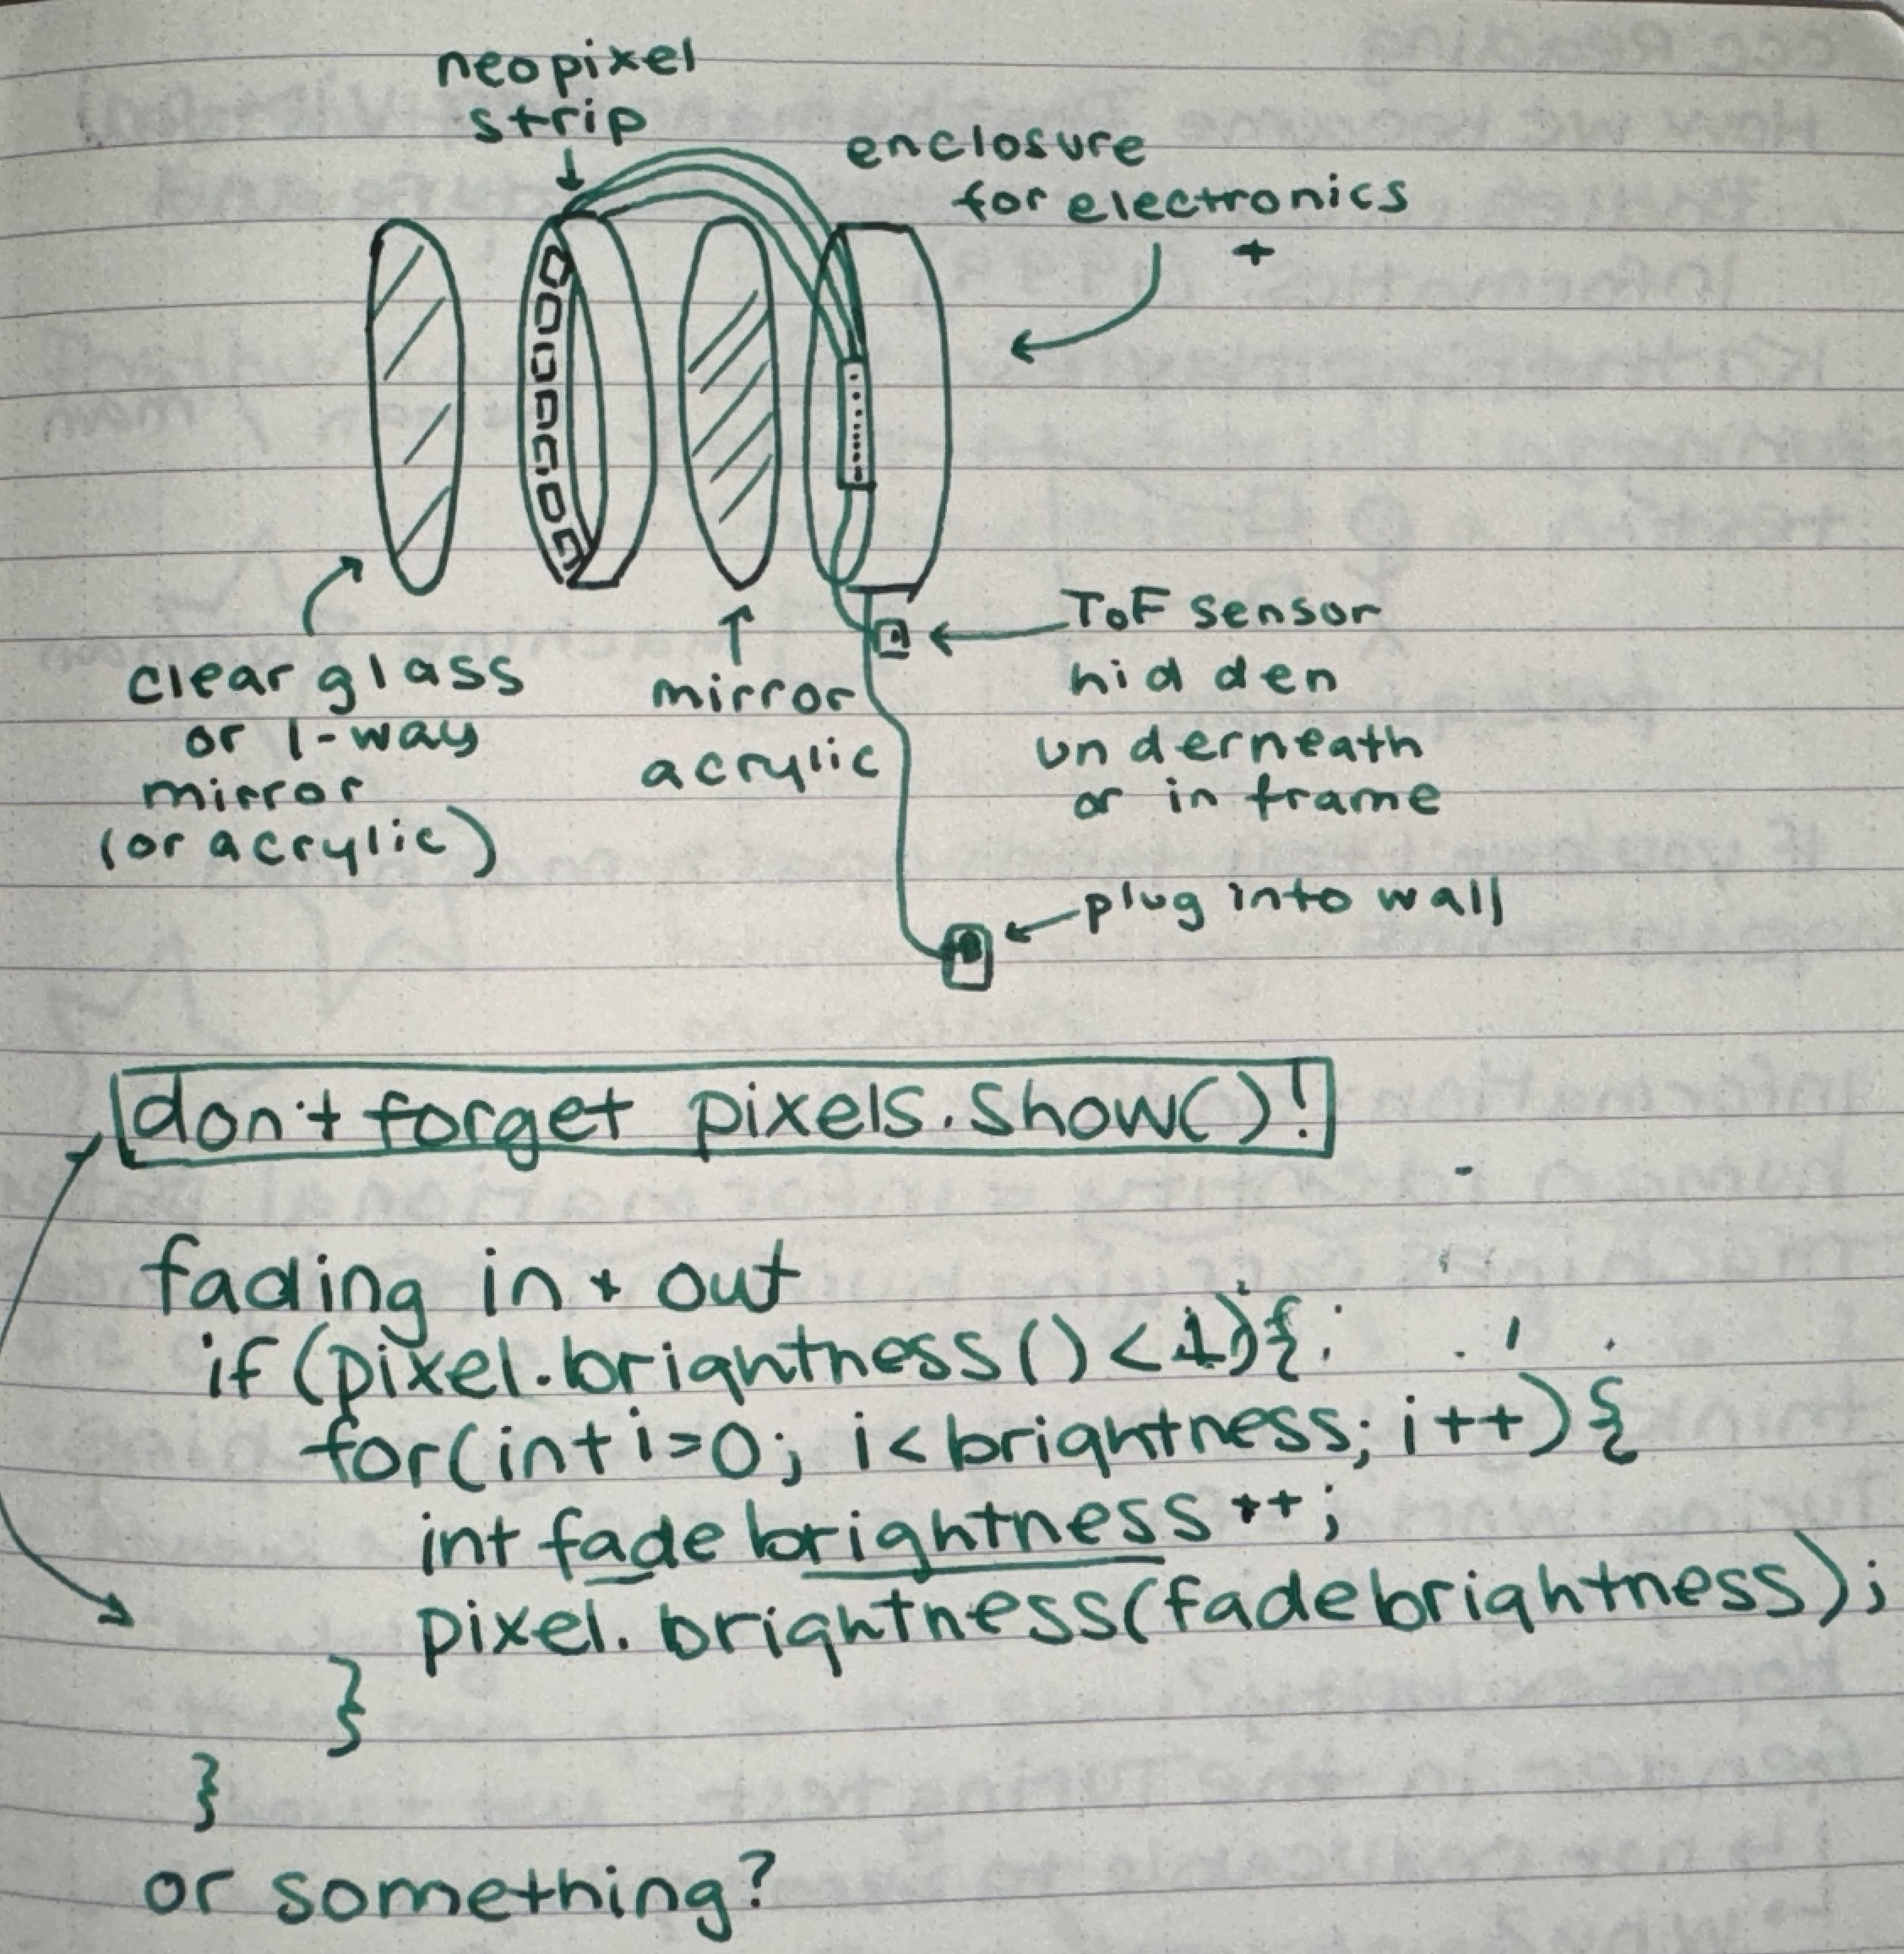 neopixel
strip
enclosure
for electronics
+
clear glass
or 1-way
mirror
(or acrylic)
mirror
acrylic
ToF sensor
hidden
underneath
or in frame
plug into wall
don't forget pixels.show()!
fading in + out
if (pixel.brightness() < 1){
for(int i=0; i < brightness; i++){
int fade brightness++;
pixel.brightness(fadebrightness);
}
}
or something?